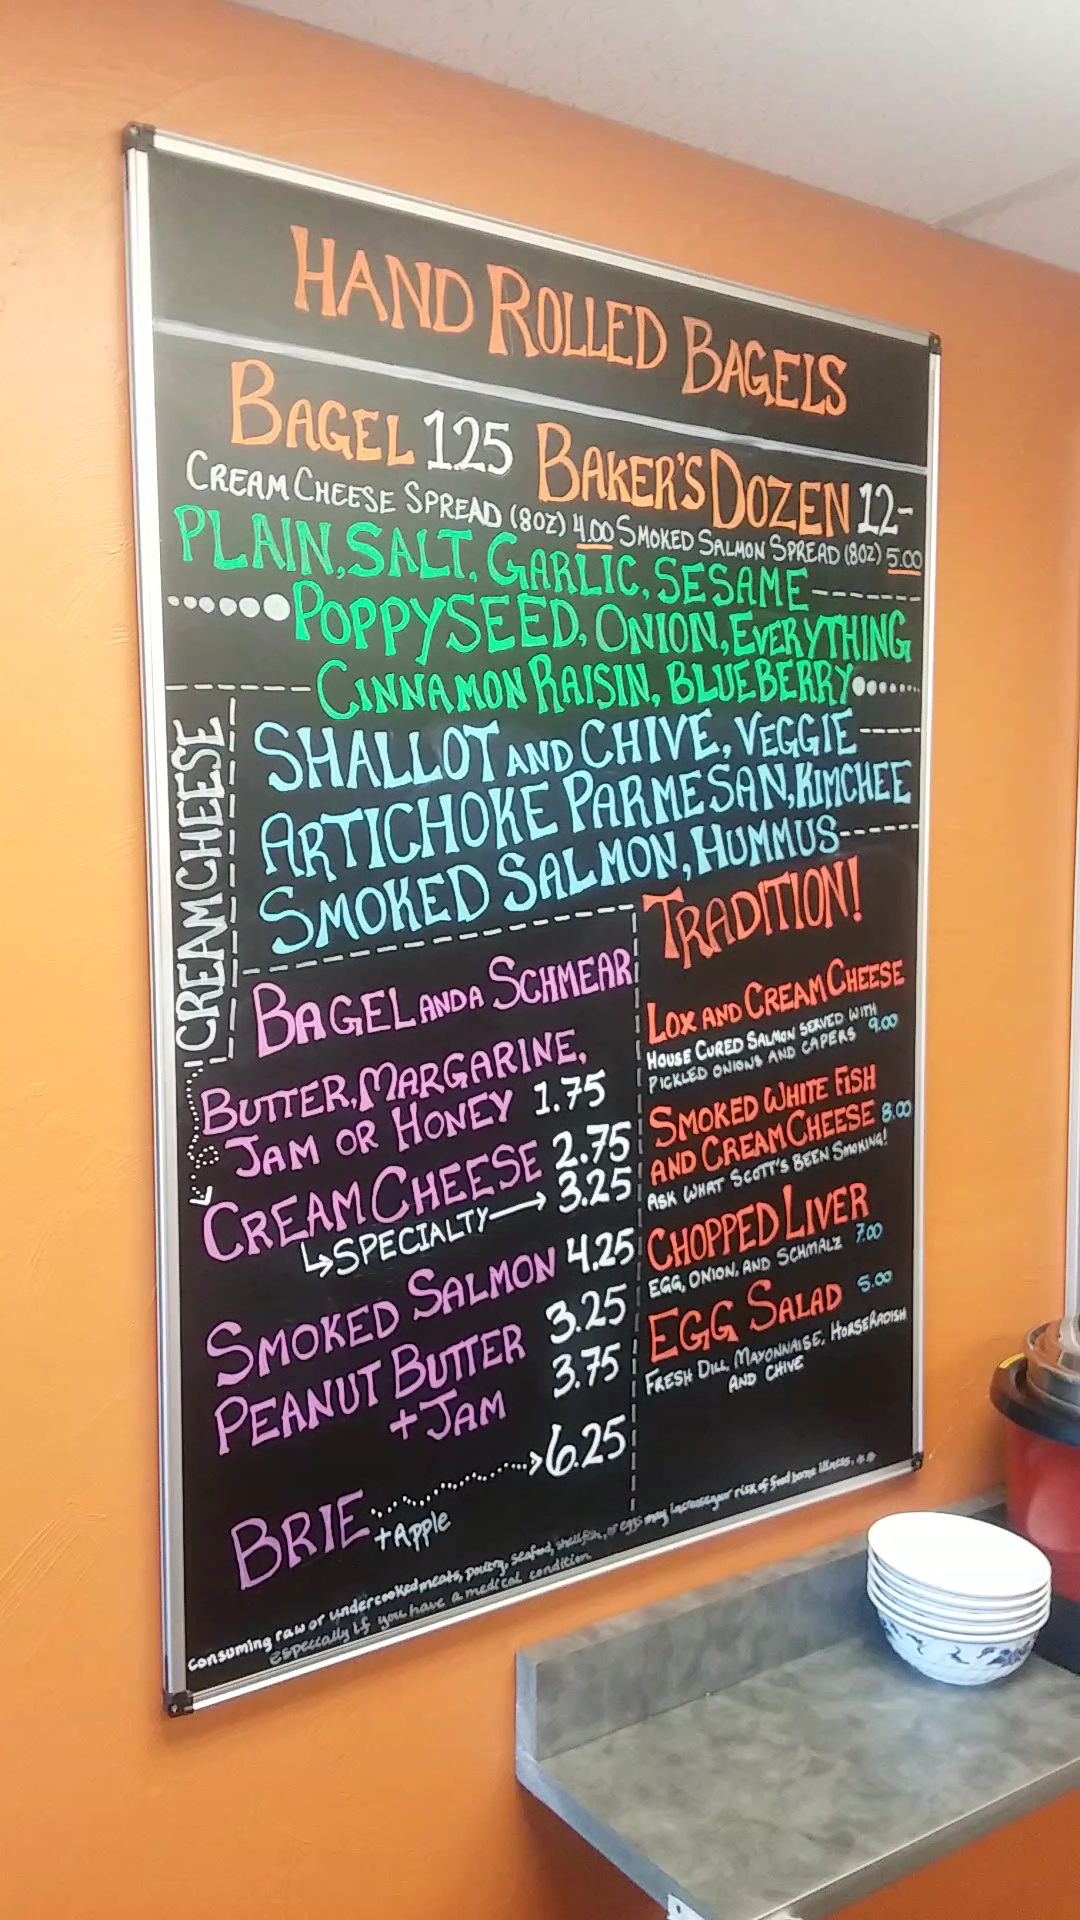 HAND ROLLED BAGELS
BAGEL 1.25 BAKER'S DOZEN 12-
CREAM CHEESE SPREAD (8OZ) 4.00 SMOKED SALMON SPREAD (8OZ) 5.00
PLAIN, SALT, GARLIC, SESAME
POPPYSEED, ONION, EVERYTHING
CINNAMON RAISIN, BLUEBERRY
CREAM CHEESE
SHALLOT AND CHIVE, VEGGIE
ARTICHOKE PARMESAN, KIMCHEE
SMOKED SALMON, HUMMUS
BAGEL AND A SCHMEAR
BUTTER, MARGARINE,
JAM OR HONEY 1.75
CREAM CHEESE 2.75
SPECIALTY 3.25
SMOKED SALMON 4.25
PEANUT BUTTER 3.25
+ JAM 3.75
BRIE 6.25
+ Apple
TRADITION!
LOX AND CREAM CHEESE
HOUSE CURED SALMON SERVED WITH
PICKLED ONIONS AND CAPERS 9.00
SMOKED WHITE FISH
AND CREAM CHEESE 8.00
ASK WHAT SCOTT'S BEEN SMOKING!
CHOPPED LIVER
EGG, ONION, AND SCHMALZ 7.00
EGG SALAD 5.00
FRESH DILL, MAYONNAISE, HORSERADISH
AND CHIVE
Consuming raw or undercooked meats, poultry, seafood, shellfish, or eggs may increase your risk of food borne illness, **
especially if you have a medical condition